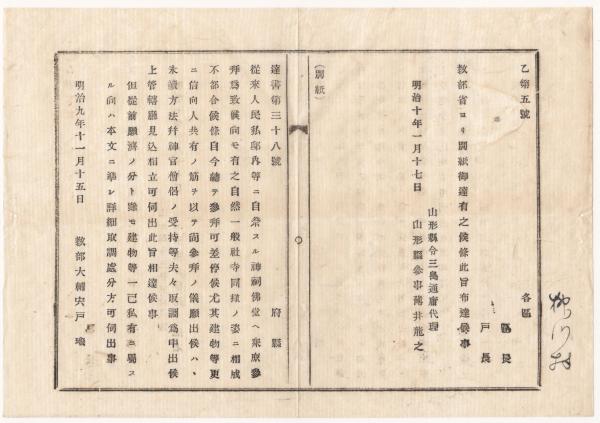 乙第五號
各區
區長
戸長
教部省ヨリ別紙御達有之候條此旨布達候事
山形縣令三島通庸代理
明治十年一月十七日
山形縣參事薄井龍之
(別紙)
達書第三十八號
府縣
從來人民私邸內等ニ自祭スル神祠佛堂ヘ衆庶參
拜爲致候向モ有之自然一般社寺同樣ノ姿ニ相成
不都合候條自今總テ參拜可差停候尤其建物等更
ニ信向人共有ノ筋ヲ以テ尚參拜ノ儀願出候ハヽ
永續方法幷神官僧侶ノ受持等夫々取調爲申出候
上管轄廳見込相立可伺出此旨相達候事
但從前願濟ノ分ト雖モ建物等一己私有ニ屬ス
ル向ハ本文ニ準シ詳細取調處分方可伺出事
明治九年十一月十五日
教部大輔宍戸璣